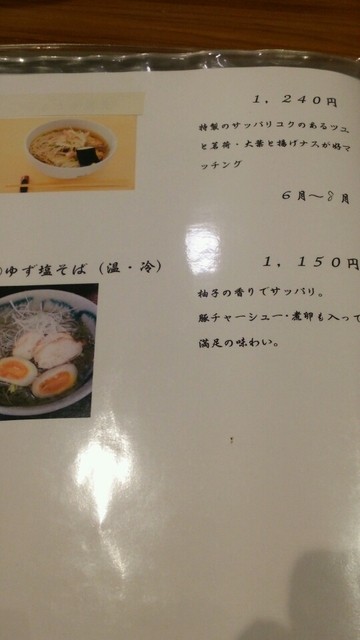 1,240円
特製のサッパリコクのあるツユ
と茗荷・大葉と揚げナスが好マ
ッチング
6月~8月
ゆず塩そば(温・冷)
1,150円
柚子の香りでサッパリ。
豚チャーシュー・煮卵も入って
満足の味わい。